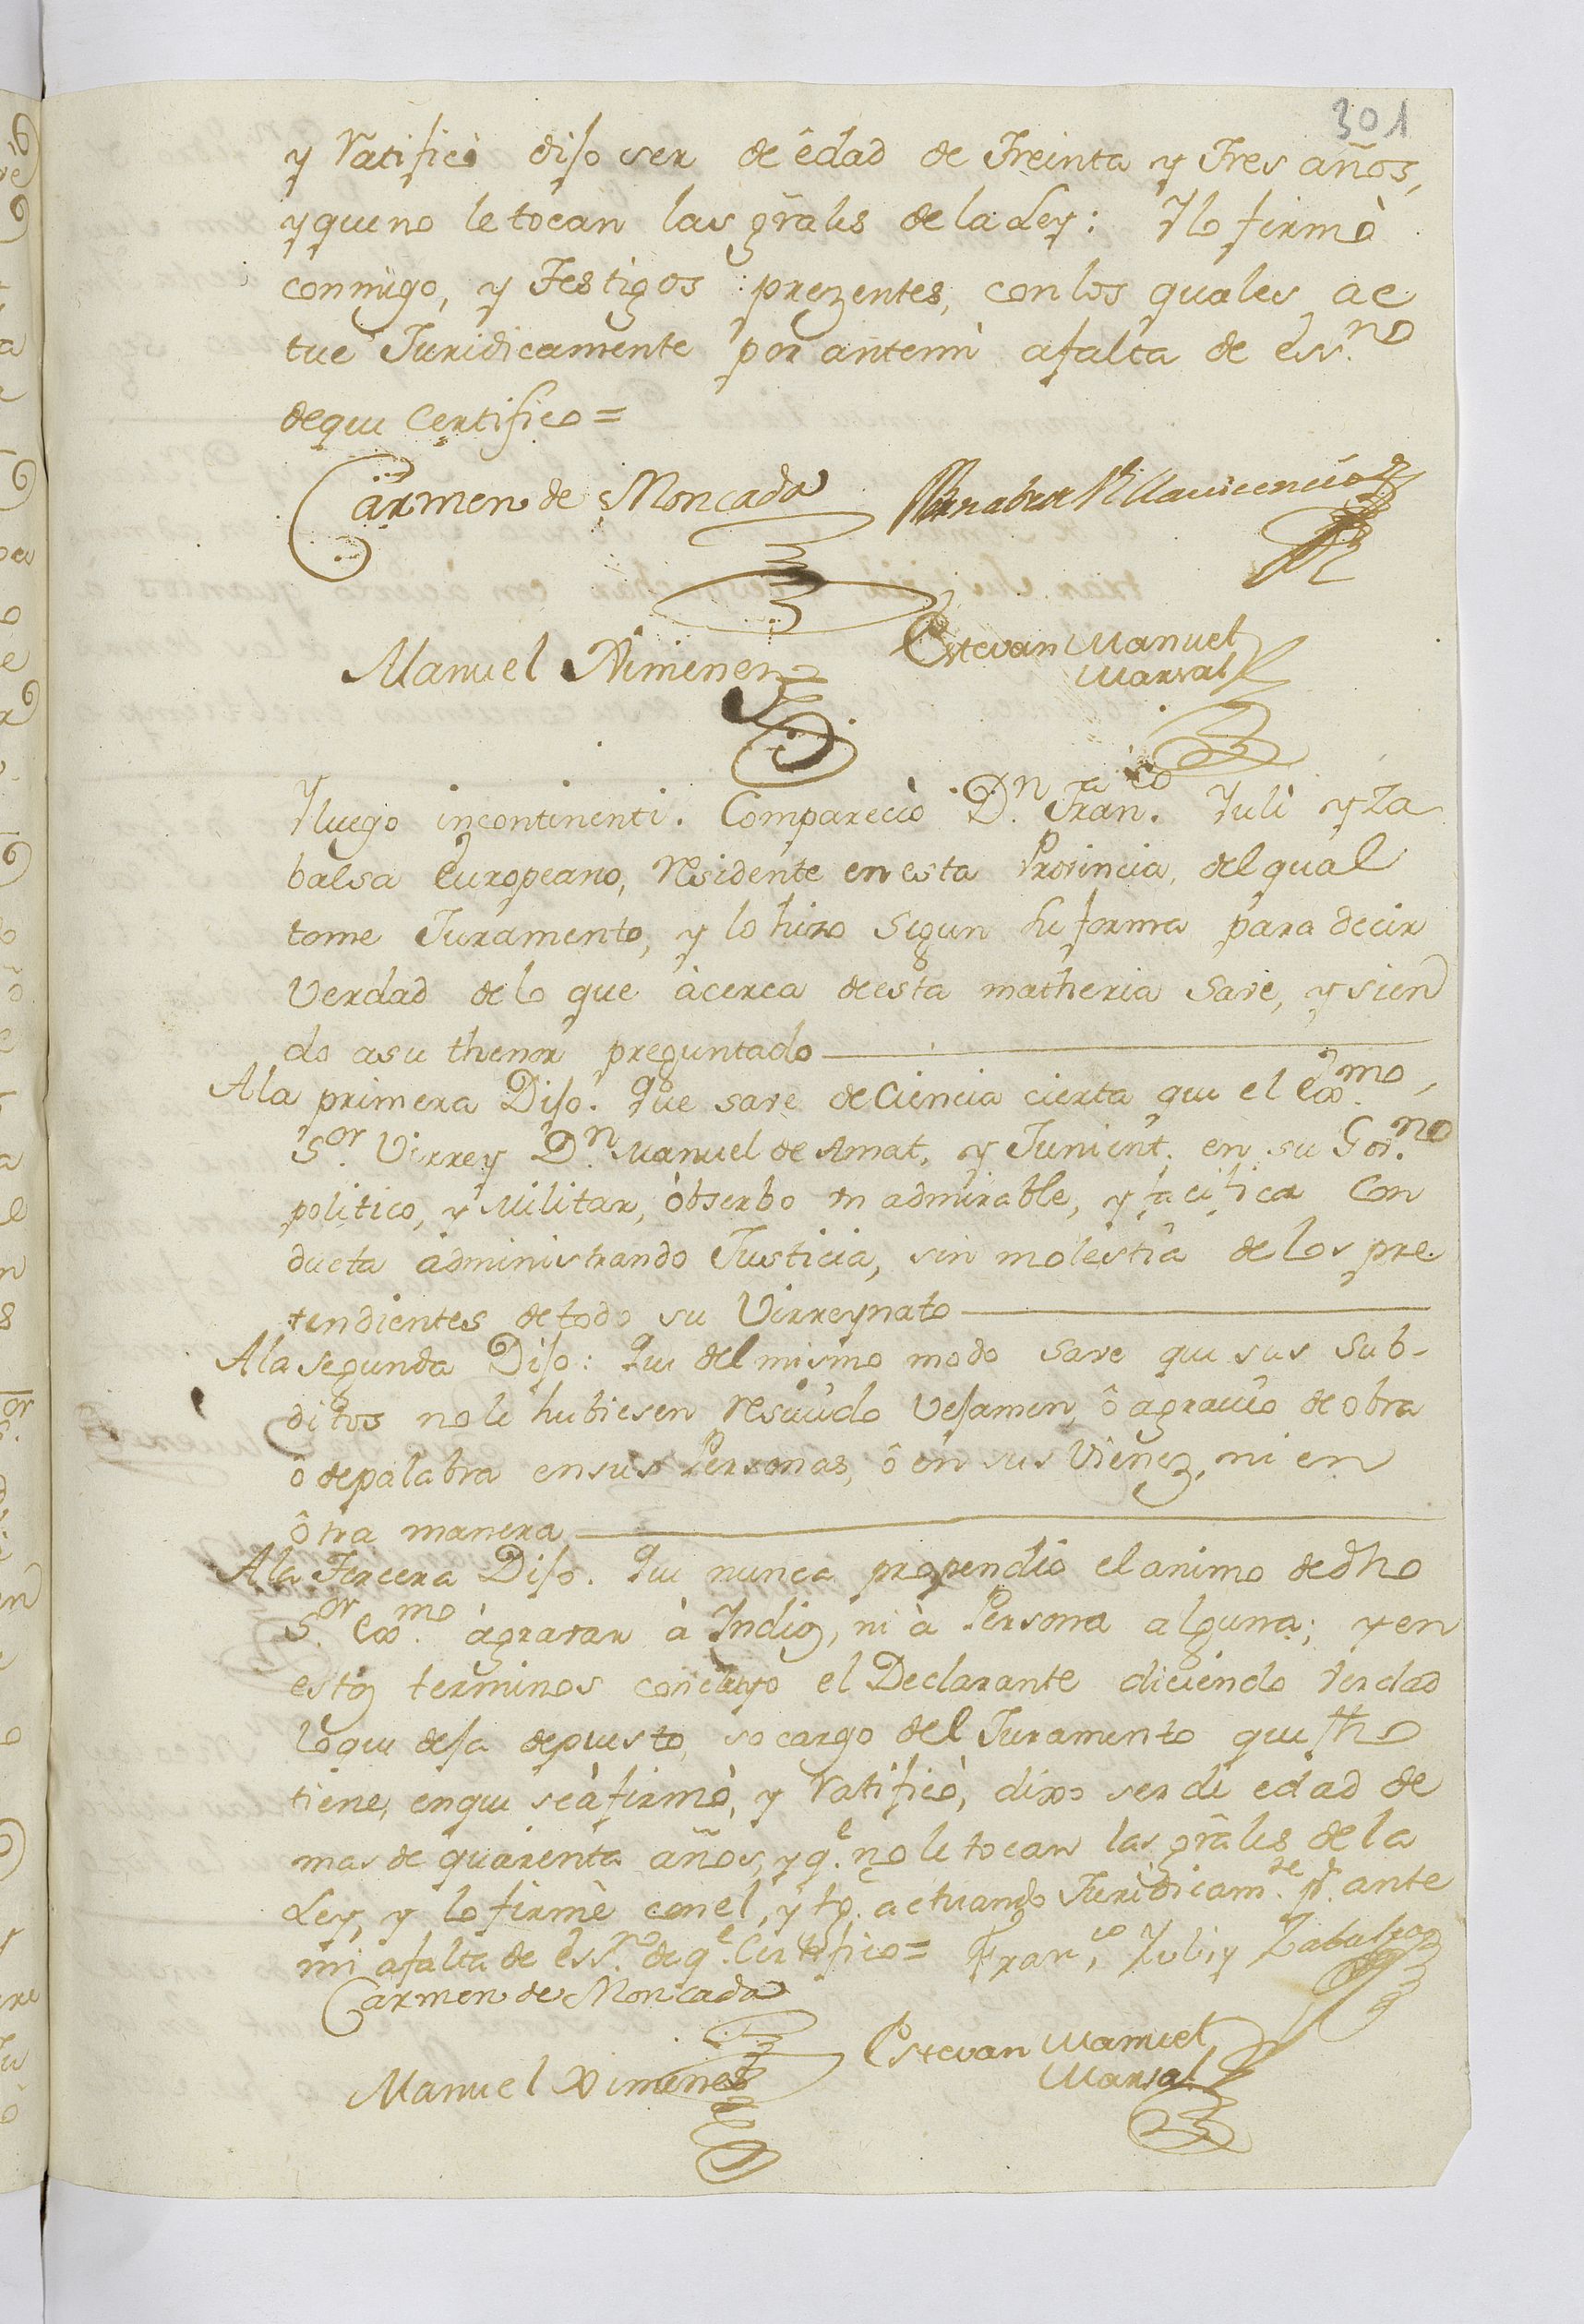 301
y Ratificò dijo ser de êdad de Treinta y Tres años,
y que no le tocan las grãles de la Ley: Y lo firmò
conmigo, y Testigos prezentes, con los quales ac
tuè Juridicamente por antemi afalta de Ess.no
de que Certifico=
Carmen de Moncada
Manuel Ximenez
Estevan Manuel
Marsal
Yluego incontinenti. Compareciò D.n Fran.co Juli y Za
balsa Europeano, residente en esta Provincia, del qual
tome Juramento, y lo hizo Segun su forma para decir
Verdad de lo que àcerca de esta matheria Save, y sien
do asu thenor preguntado
Ala primera Dijo. Que save de Ciencia cierta que el Exc.mo
S.or Virrey D.n Manuel de Amat, y Junient, en su Gov.no
politico, y Militar, òbserbo un admirable, y pacifica Con
ducta administrando Justicia, sin molestia de los pre
tendientes de todo su Virreynato
Ala segunda Dijo: Que del mismo modo Save que sus Sub-
ditos no le hubiesen resivido Vejamen, ô agravio de obra
ô de palabra en sus Personas, ô en sus Vienez, ni en
ôtra manera
Ala Tercera Dijo. Que nunca propendio el animo de dho
S.or Exc.mo àgravar à Indios, ni à Persona alguna; y en
estos terminos concluyo el Declarante diciendo verdad
lo que deja depuesto, so cargo del Juramento que fho
tiene, en que seàfirmò, y Ratificò, dixo ser de edad de
mas de quarenta años, y q.e no le tocan las grãles de la
Ley, y lo firmè con el, y tgos. actuando Juridicam.te p.r ante
mi afalta de Ess.no de q.e Certifico= Fran.co Juli y Zabalza
Carmen de Moncada
Manuel Ximenez
Estevan Manuel
Marsal